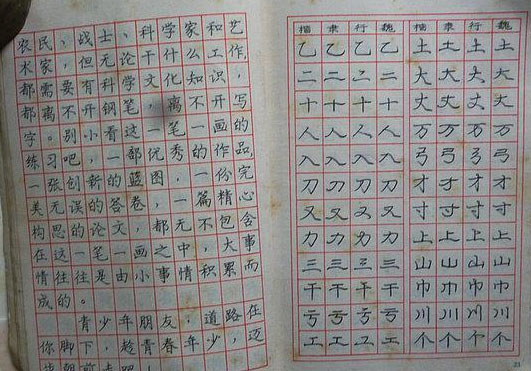 农民、战士、科学家和艺
术家，但无论干什么工作，
都需要有科学文化知识，
都离不开钢笔，离不开写
字。别小看这一笔一画的
练习吧，一部优秀的作品，
一张创新的蓝图，一份完
美无误的答卷，一篇精心
构思的论文，都无不包含
在这一笔一画之中，大事
情往往是由小事情积累而
成的。
青少年朋友，道路在
你脚下，趁青春年少，迈
楷 隶 行 魏 楷 隶 行 魏
乙 乙 乙 乙 土 土 土 土
二 二 二 二 大 大 大 大
十 十 十 十 丈 丈 丈 丈
人 人 人 人 万 万 万 万
入 入 入 入 弓 弓 弓 弓
刀 刀 刀 刀 才 才 才 才
又 又 又 又 寸 寸 寸 寸
力 力 力 力 上 上 上 上
三 三 三 三 山 山 山 山
干 干 干 干 巾 巾 巾 巾
亏 亏 亏 亏 川 川 川 川
工 工 工 工 个 个 个 个